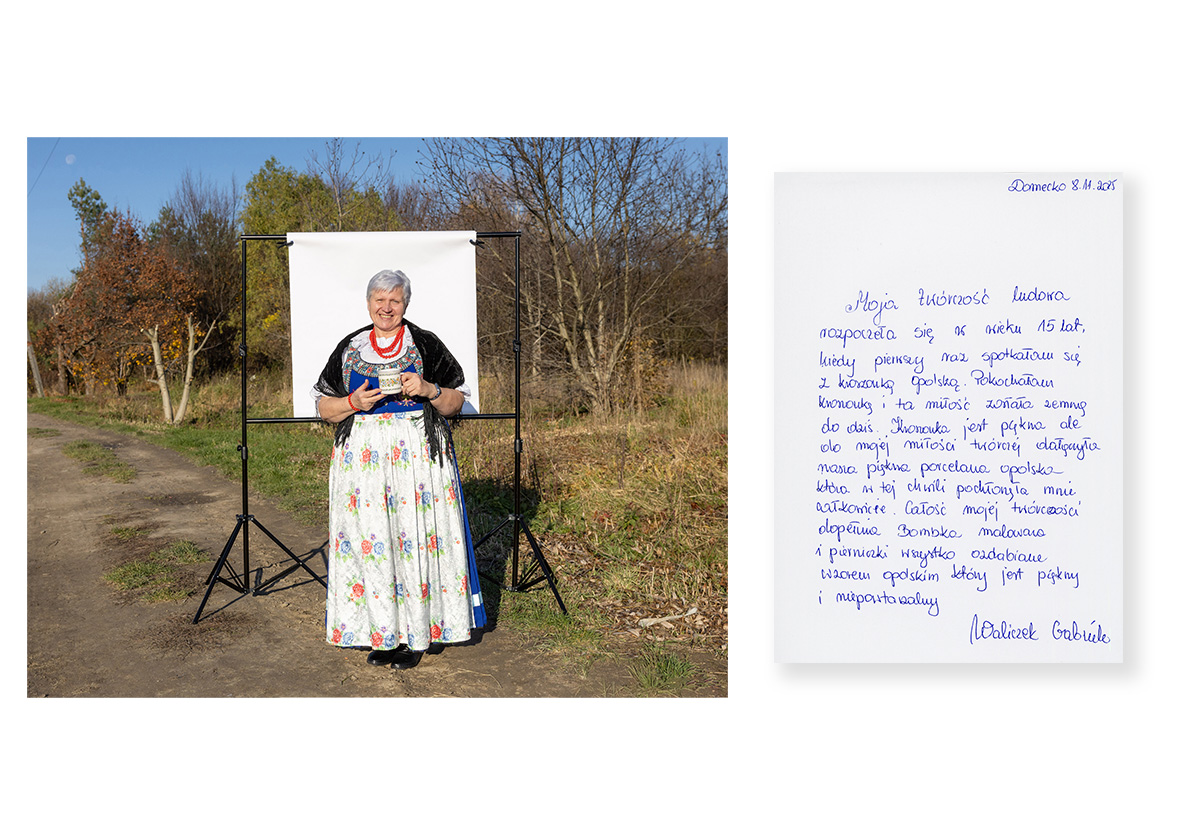 Domecko 8.11.2015
Moja twórczość ludowa
rozpoczęła się w wieku 15 lat,
kiedy pierwszy raz spotkałam się
z kroszonką opolską. Pokochałam
kronowkę i ta miłość została zemną
do dziś. Kronowka jest piękna ale
do mojej miłości twórczej dołączyła
nasza piękna porcelana opolska
która w tej chwili pochłonęła mnie
całkowicie. Całość mojej twórczości
dopełnia Bombka malowana
i pierniczki wszystko ozdabiane
wzorem opolskim który jest piękny
i niepowtarzalny
Waliczek Gabriela